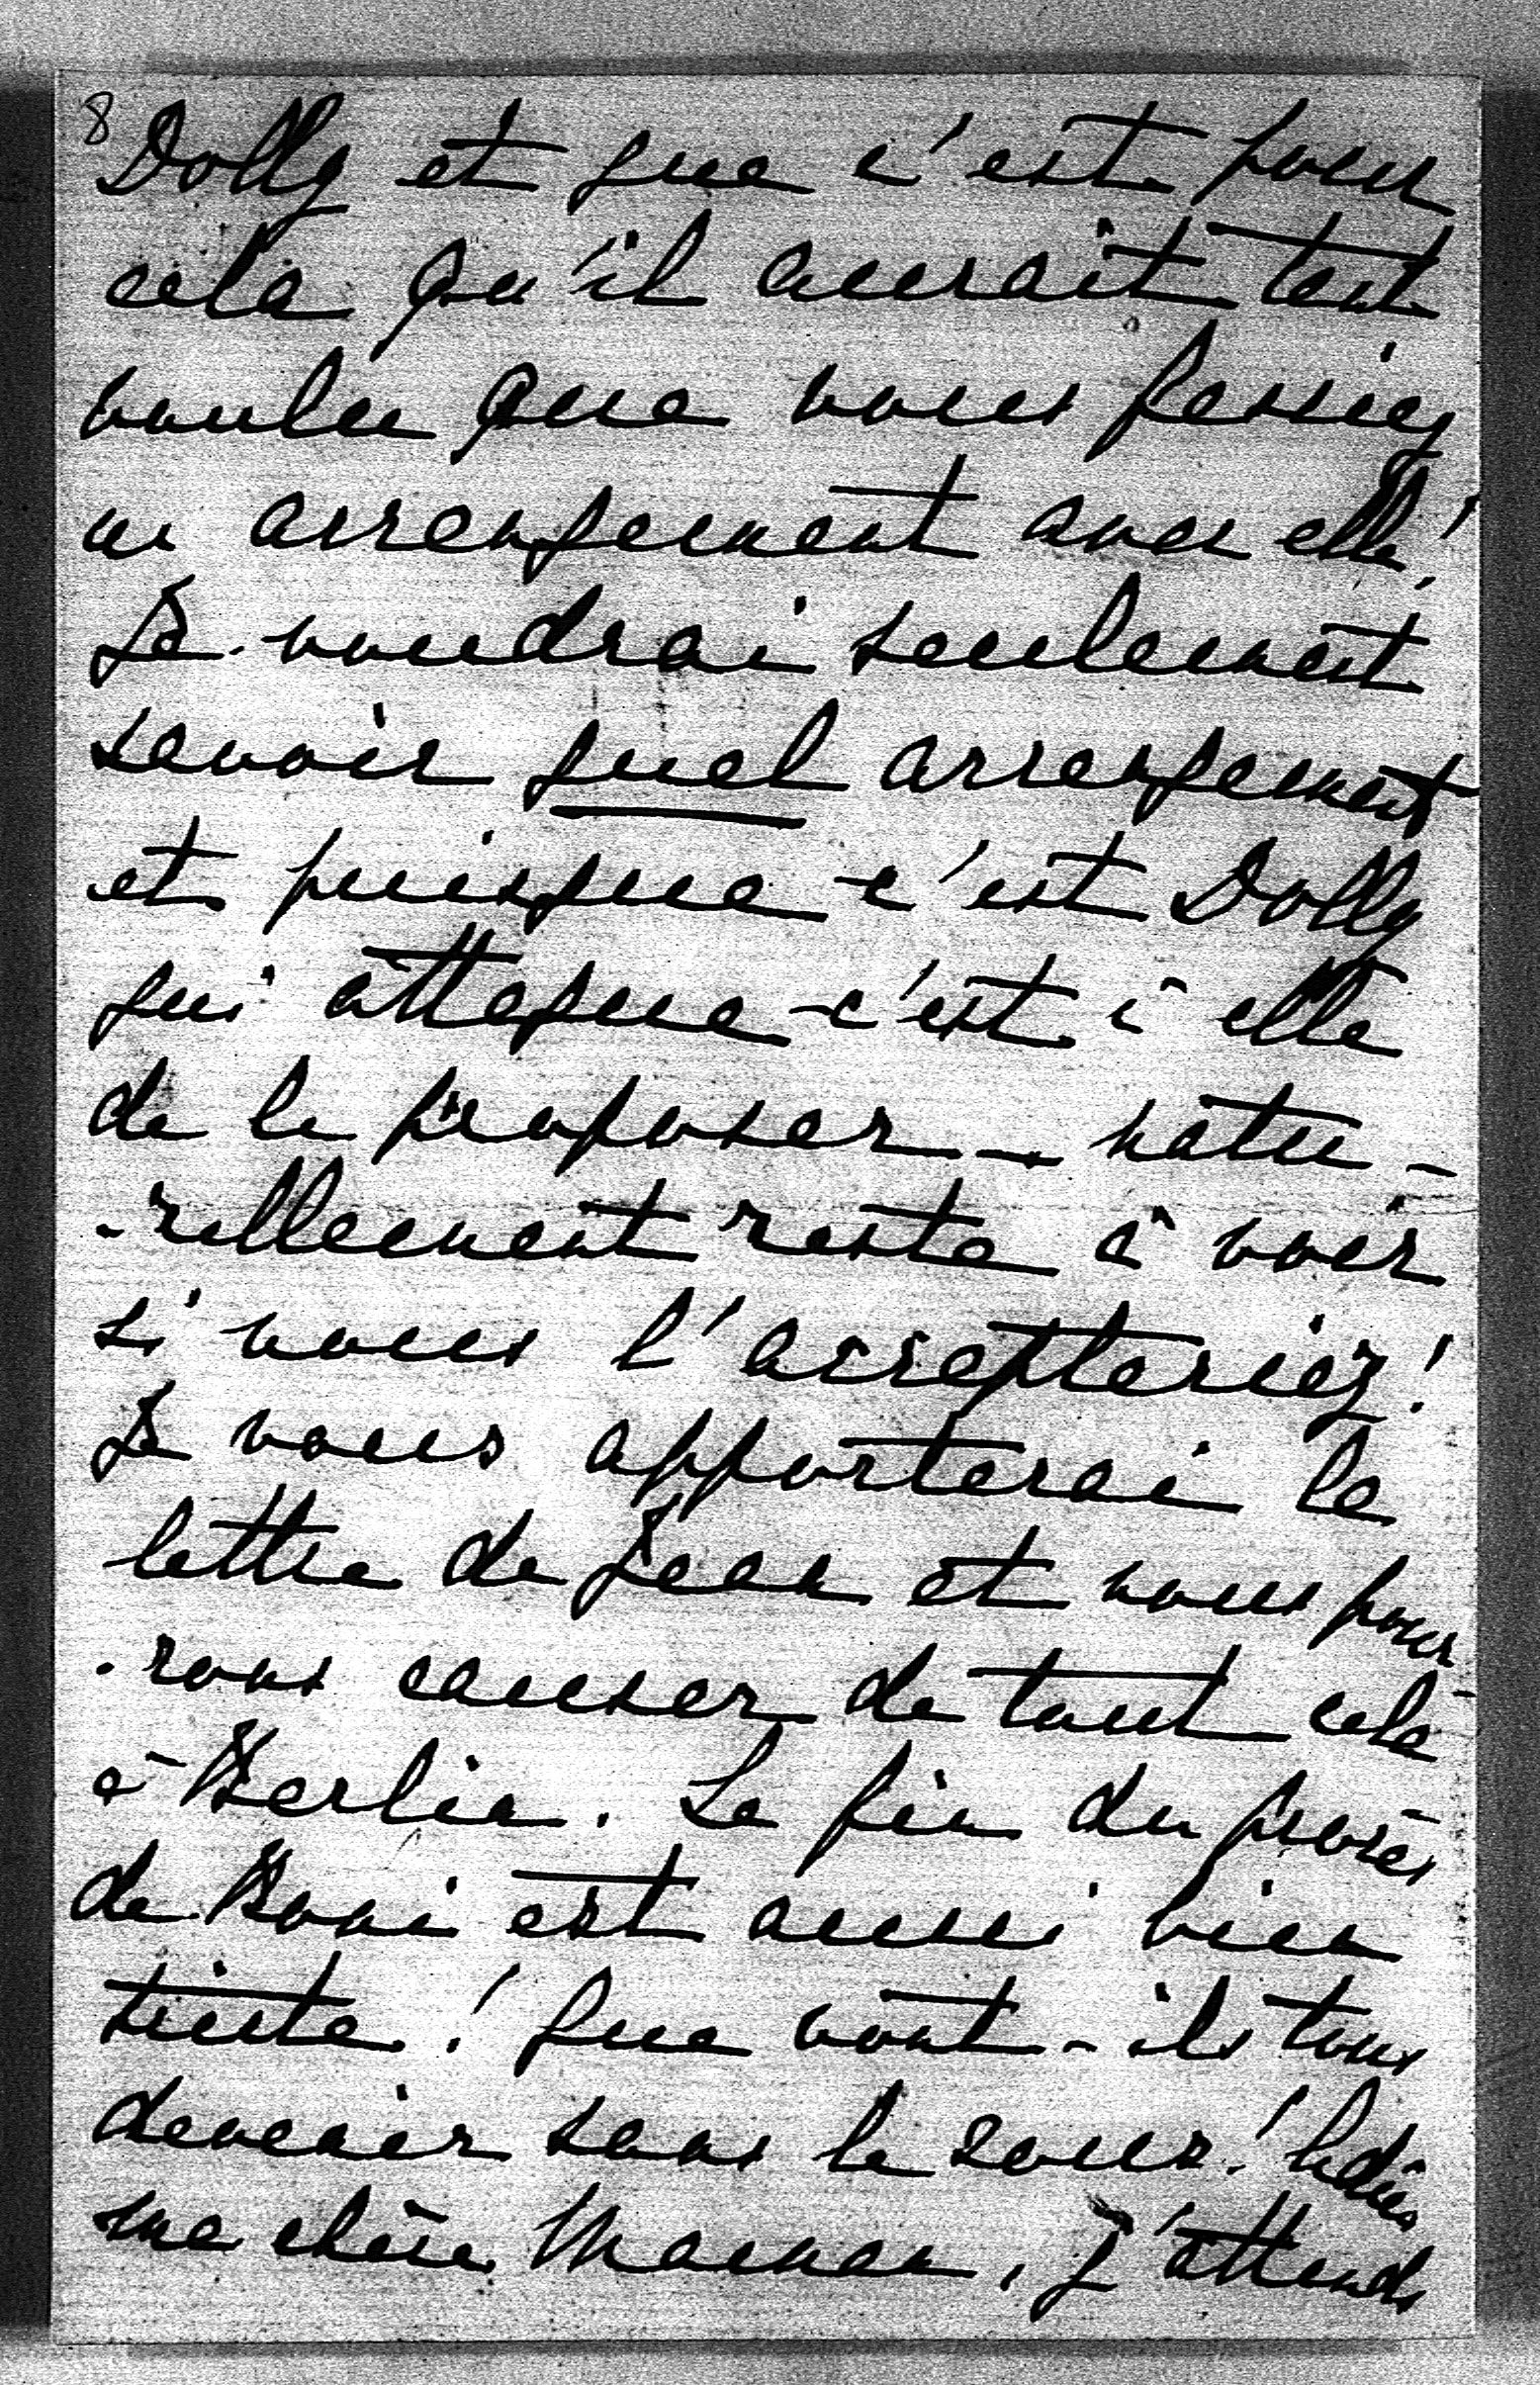 8
Dolly et que c'est pour
cela qu'il aurait tant
voulu que vous fassiez
un arrangement avec elle!
Je voudrai seulement
savoir quel arrangement
et puisque c'est Dolly
qui attaque c'est à elle
de le proposer — natu-
-rellement reste à voir
si vous l'accepteriez!
Je vous apporterai la
lettre de Jean et nous pour
-rons causer de tout cela
à Berlin. La fin du procès
de Boni est aussi bien
triste! Que vont-ils tous
devenir sans le sous! Adieu
ma chère Maman, j'attends